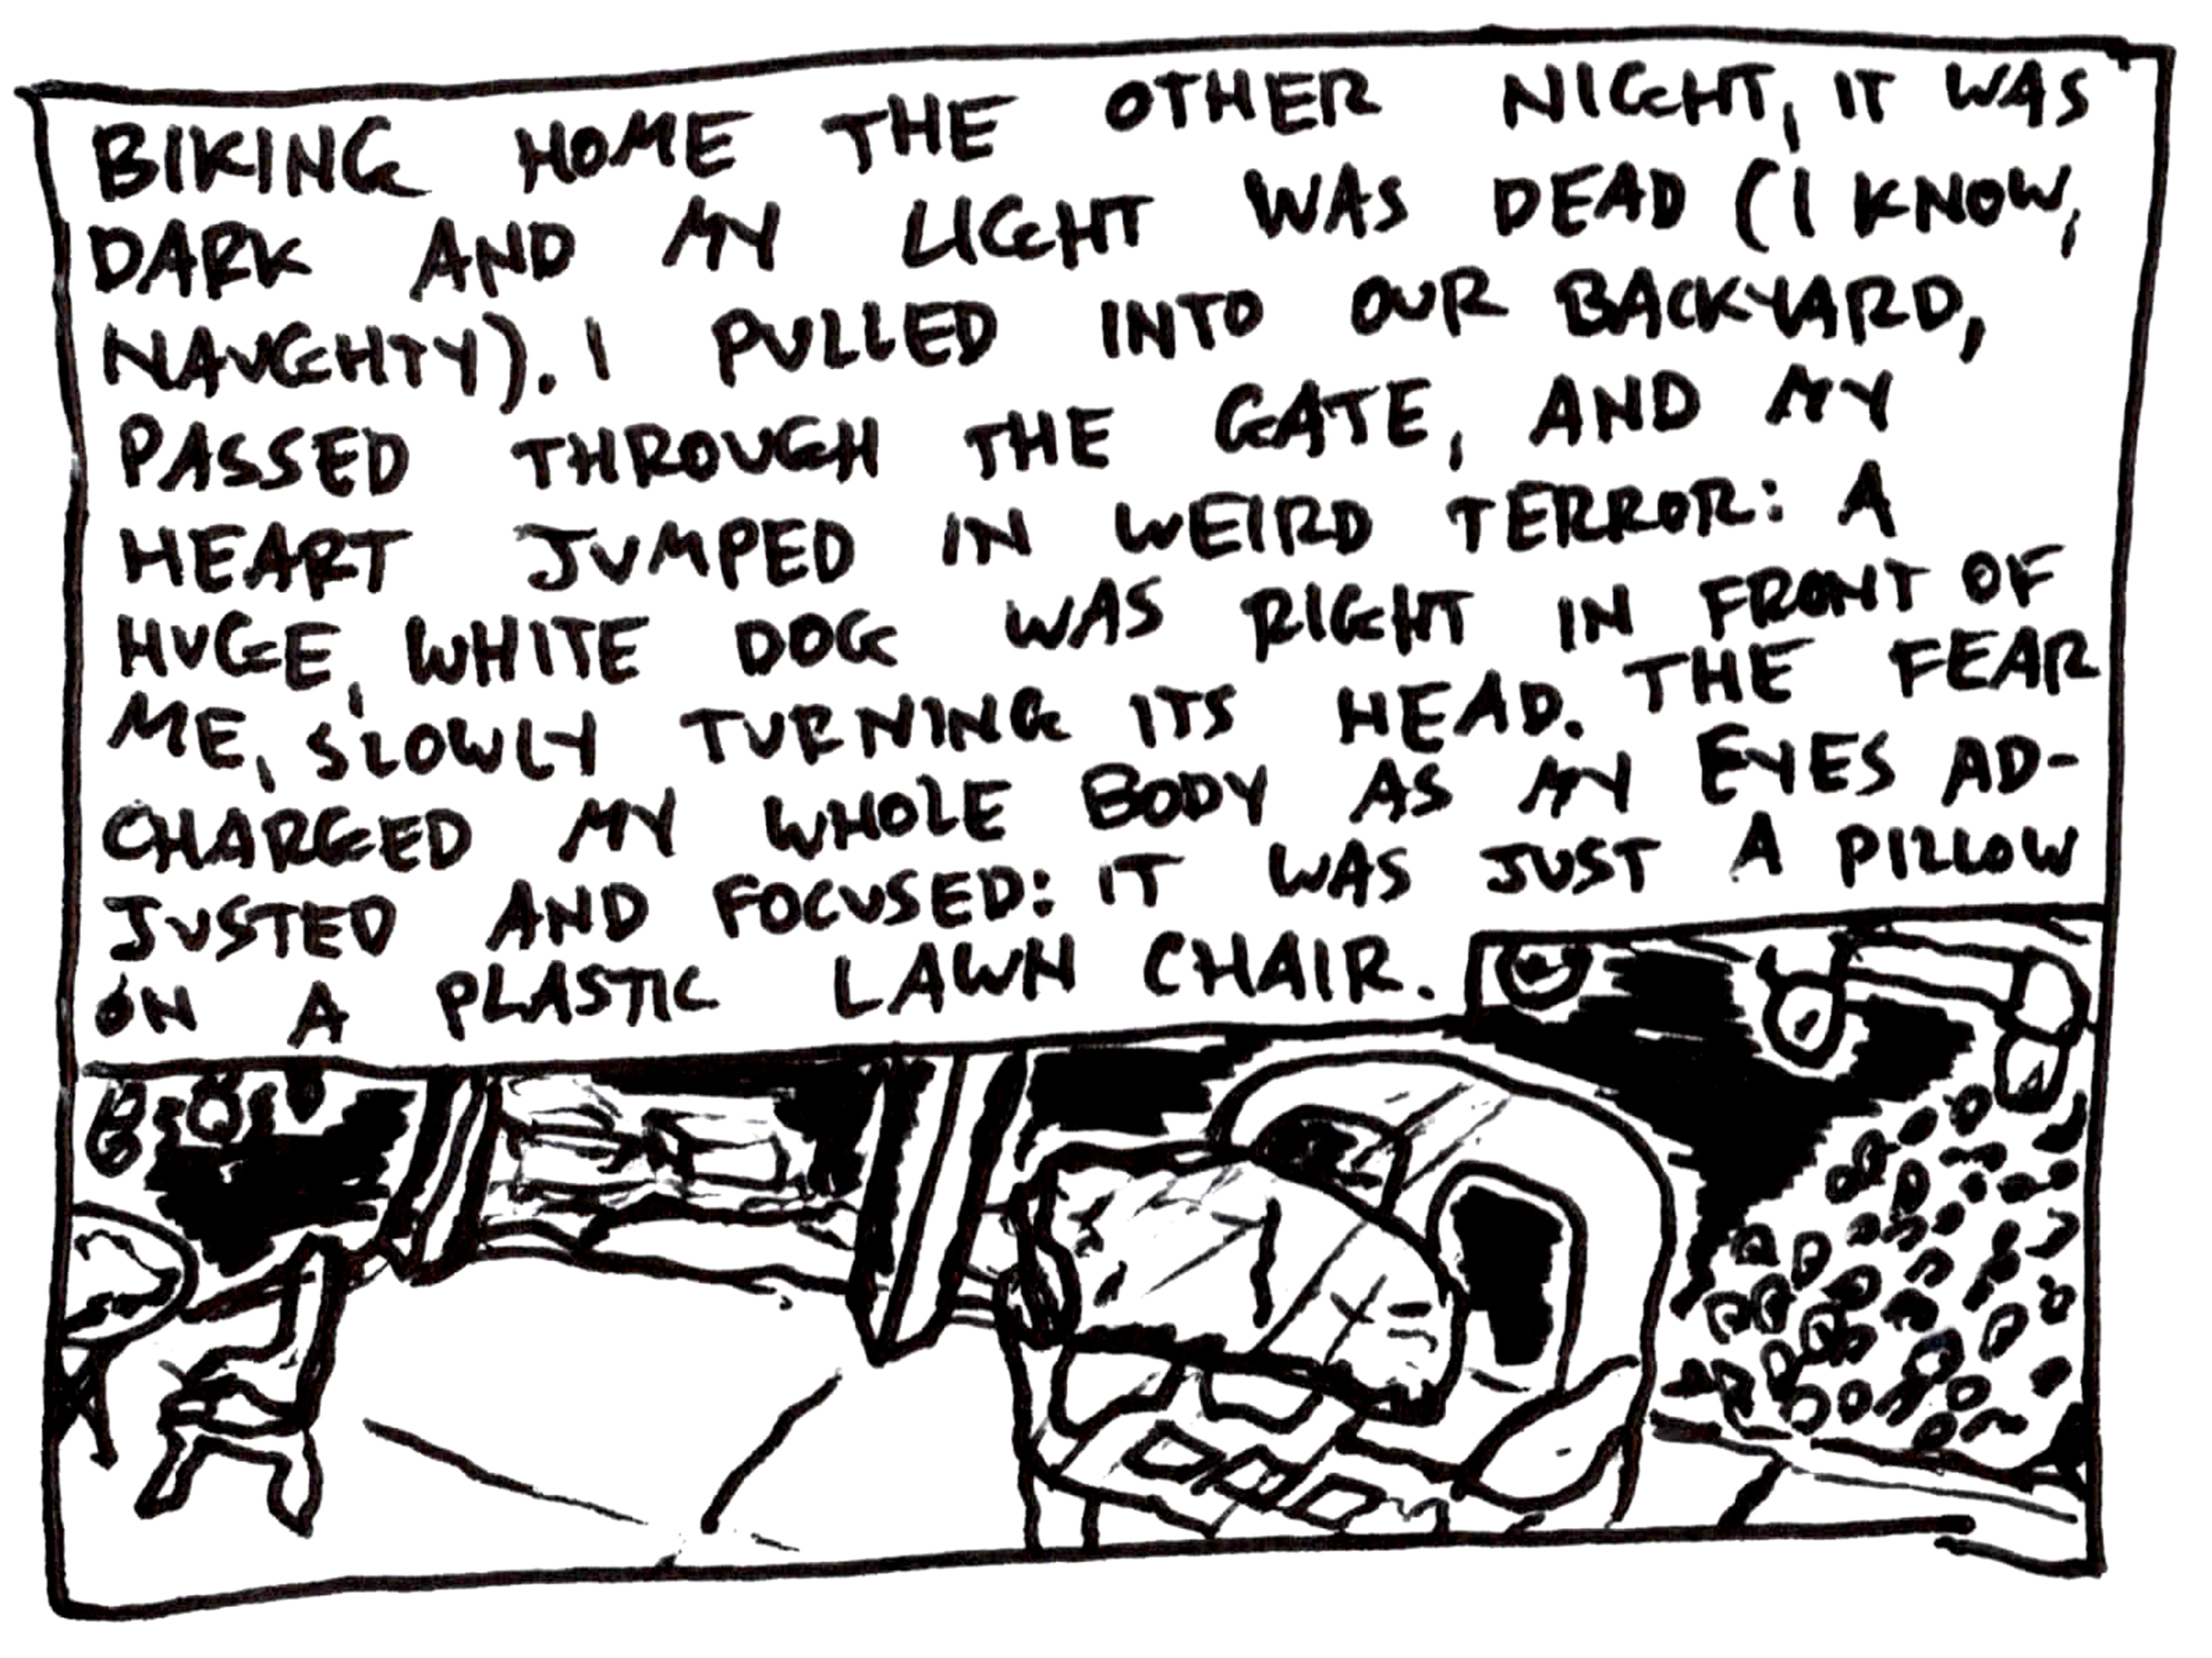 BIKING HOME THE OTHER NIGHT, IT WAS
DARK AND MY LIGHT WAS DEAD (I KNOW,
NAUGHTY). I PULLED INTO OUR BACKYARD,
PASSED THROUGH THE GATE, AND MY
HEART JUMPED IN WEIRD TERROR: A
HUGE, WHITE DOG WAS RIGHT IN FRONT OF
ME, SLOWLY TURNING ITS HEAD. THE FEAR
CHARGED MY WHOLE BODY AS MY EYES AD-
JUSTED AND FOCUSED: IT WAS JUST A PILLOW
ON A PLASTIC LAWN CHAIR.